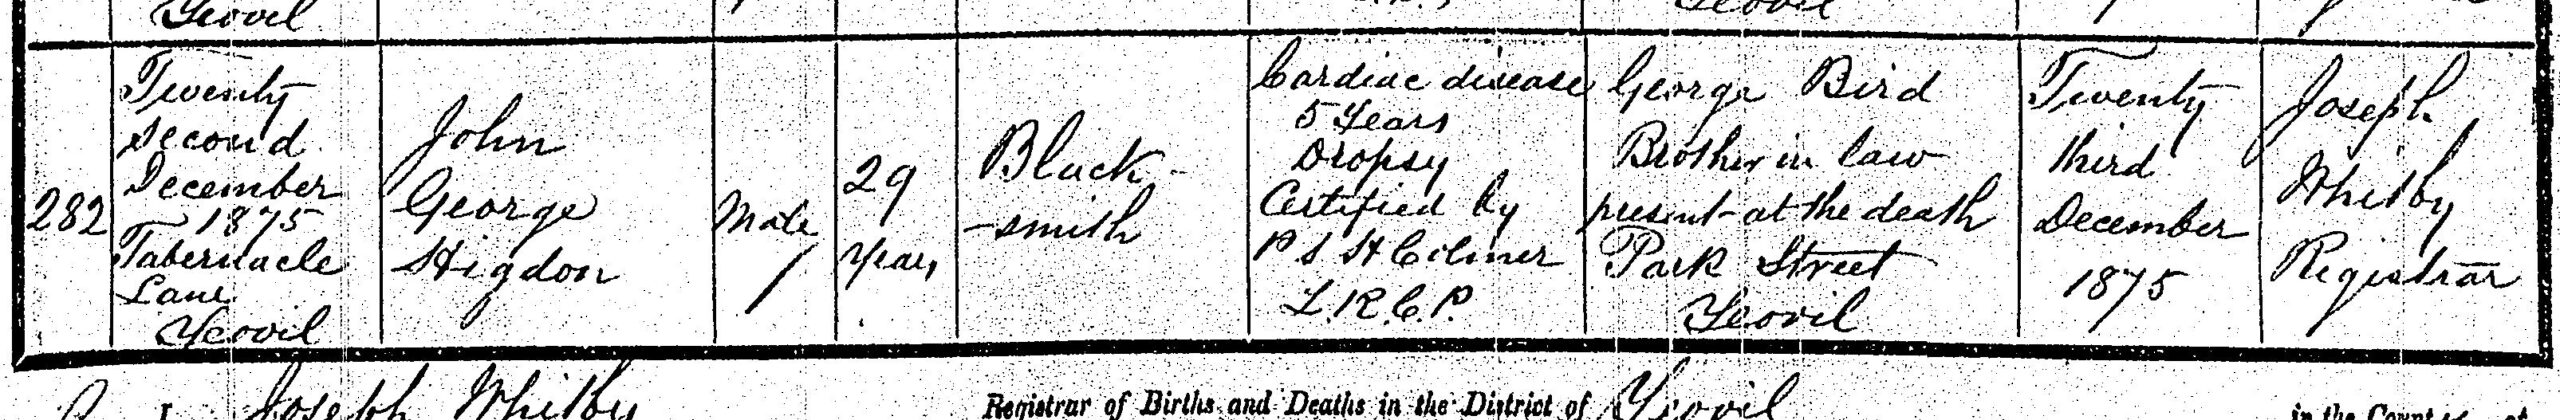 Yeovil
Yeovil
282
Twenty
second
December
1875
Tabernacle
Lane
Yeovil
John
George
Higdon
Male
29
Years
Black-
-smith
Cardiac disease
5 Years
Dropsy
Certified by
P S H
L.R.C.P.
George Bird
Brother in law
present at the death
Park Street
Yeovil
Twenty
third
December
1875
Joseph
Whitby
Registrar
Joseph Whitby Registrar of Births and Deaths in the District of Yeovil
in the Count